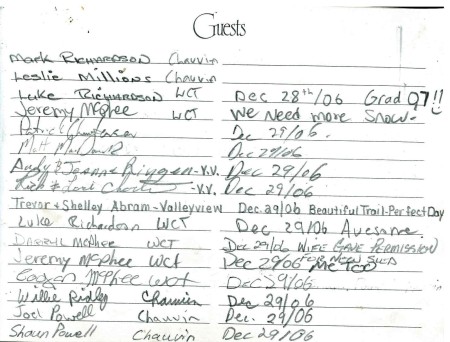 Guests
Mark Richardson Chauvin
Leslie Millions Chauvin
Luke Richardson WCT Dec 28th/06 Grad 07!!
Jeremy McPhee WCT We Need more Snow.
Patrick Dec 29/06.
Matt Dec 29/06
Andy & Jeanne V.V. Dec 29/06
Rick & V.V. Dec 29/06
Trevor & Shelley Abram - Valleyview Dec. 29/06 Beautiful Trail - Perfect Day
Luke Richardson WCT Dec 29/06 Avesome
Darryl McPhee WCT Dec 29/06 Wife Gave Permission
For New Sled
Jeremy McPhee WCT Dec 29/06 Me Too
McPhee WCT Dec 29/06
Willie Ridley Chauvin Dec 29/06
Joel Powell Chauvin Dec. 29/06
Shaun Powell Chauvin Dec 29/06